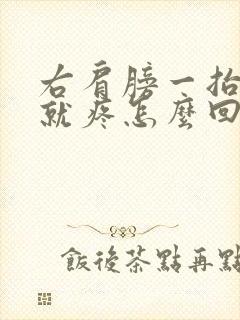 右肩膀一抬
就疼怎麼回
飯後茶點再點